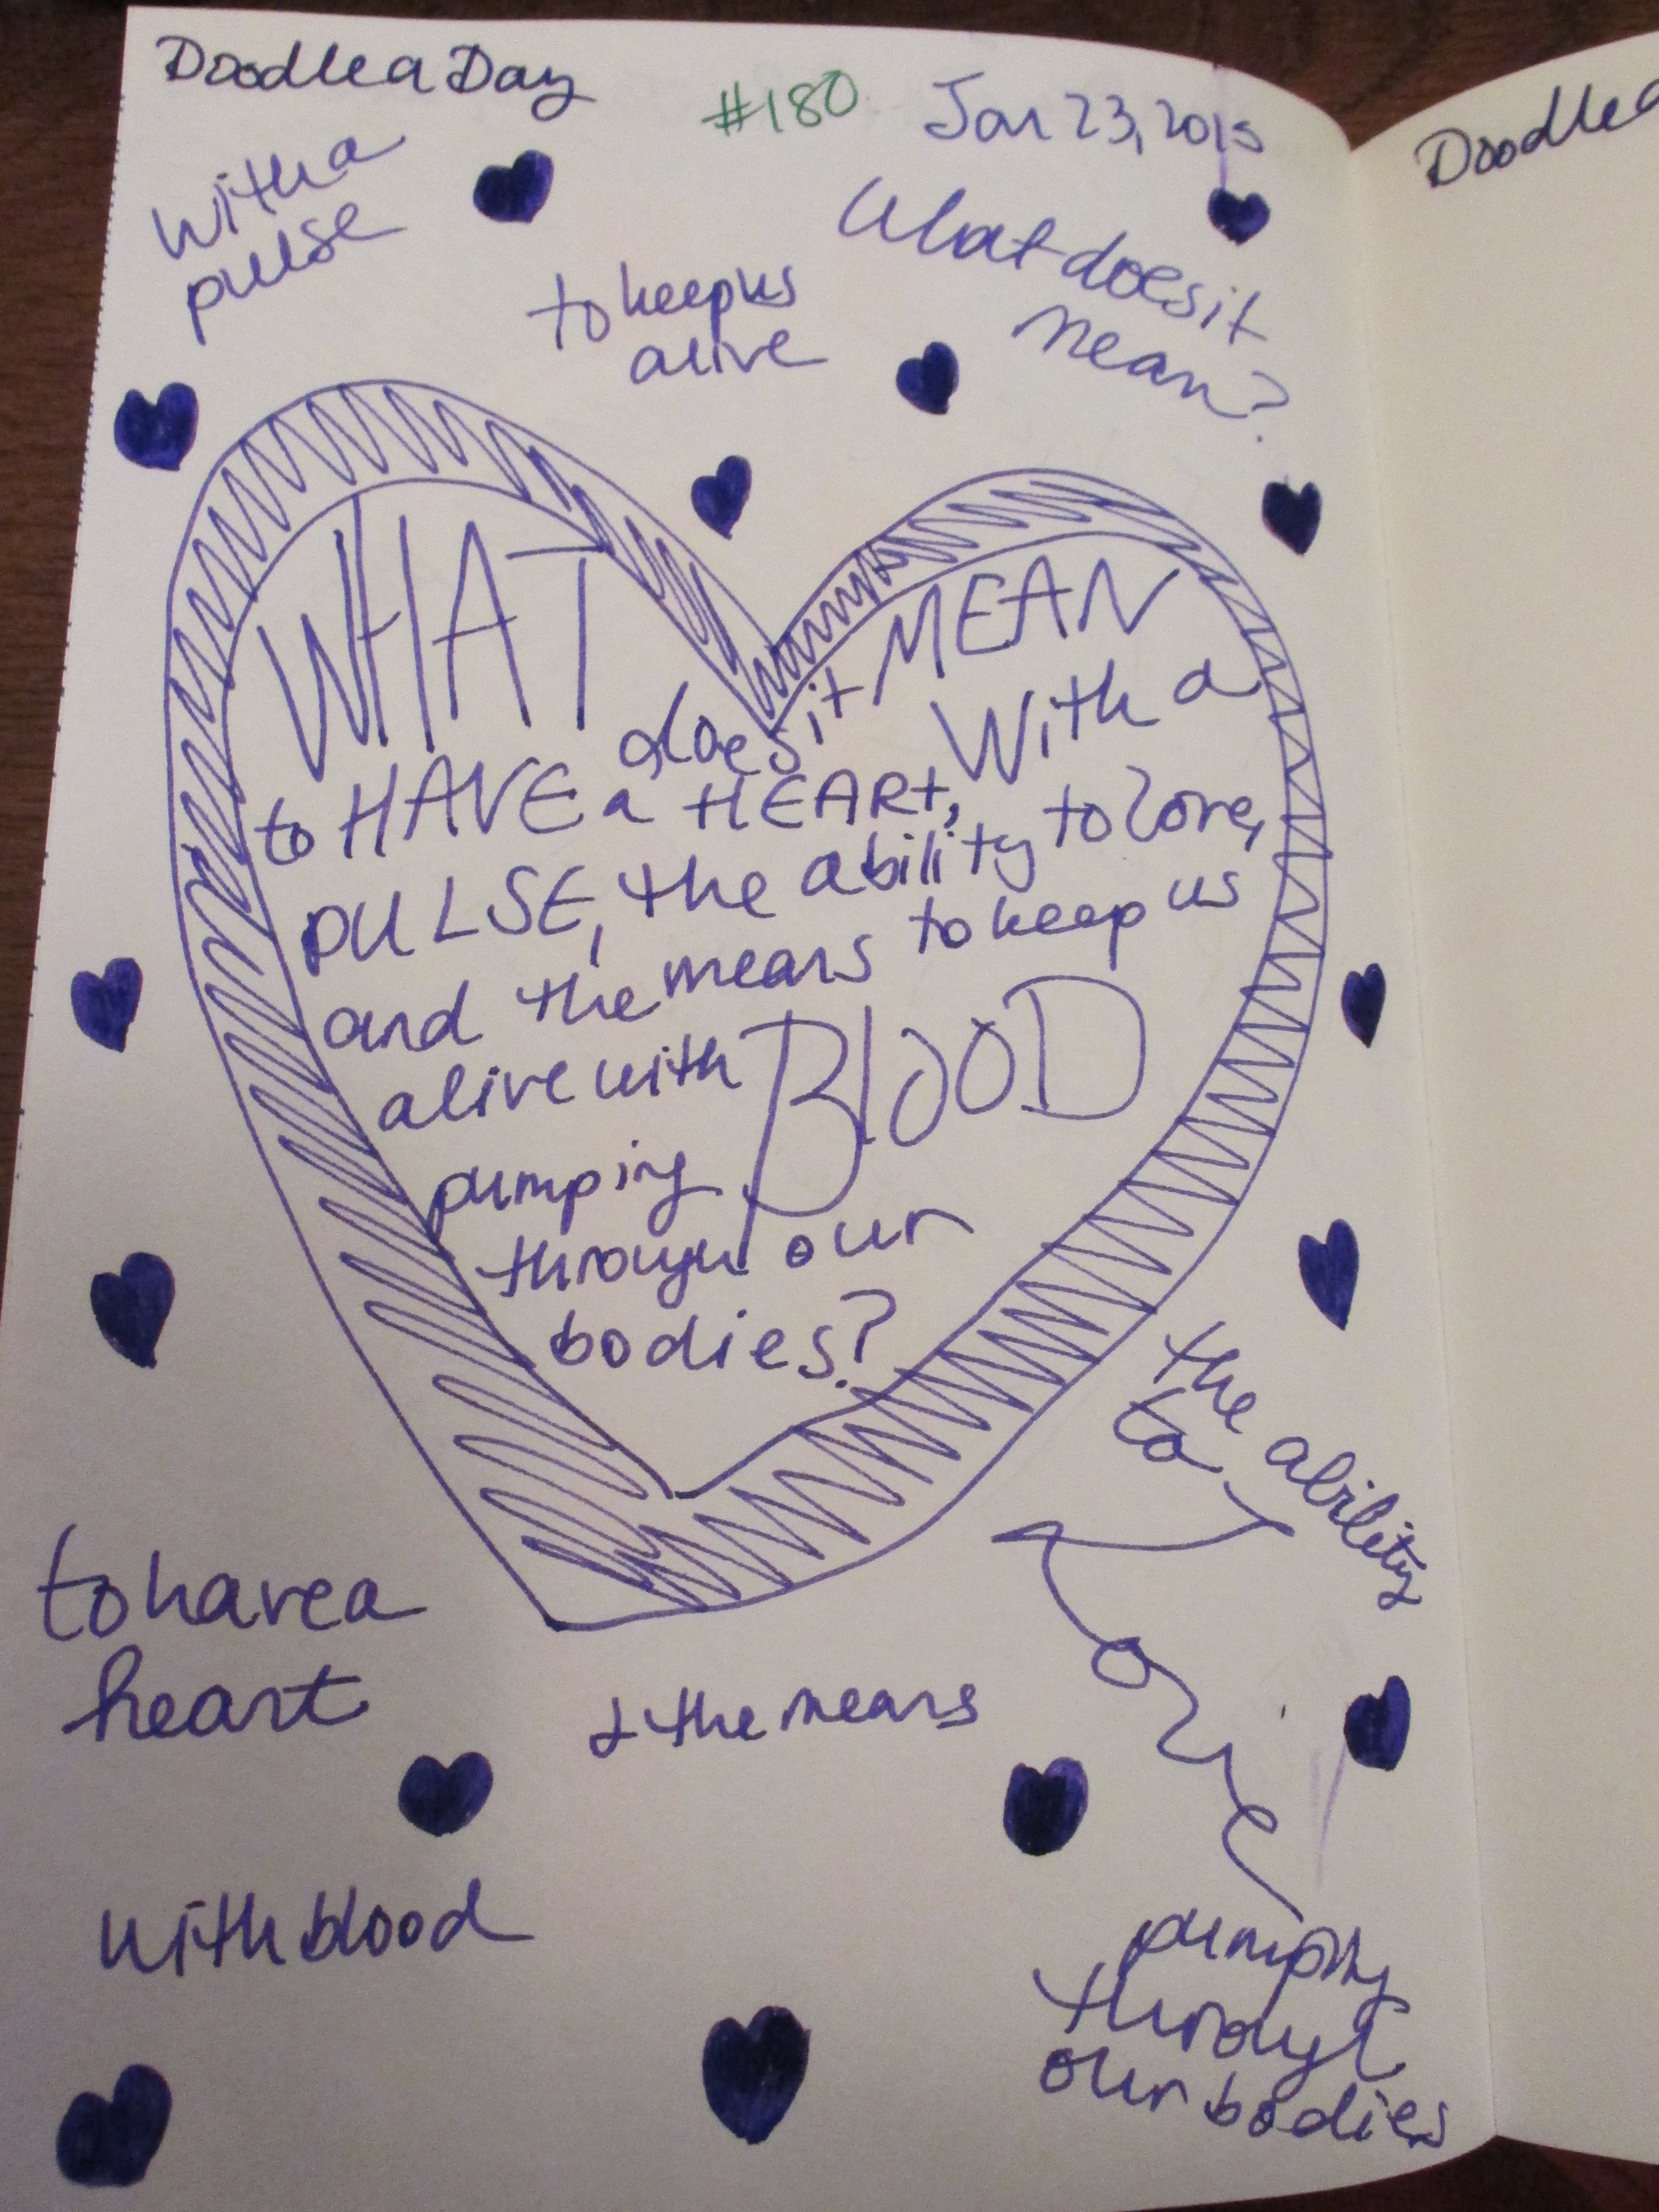 Doodle a Day
#180
Jan 23, 2015
Doodle a
With a
pulse
to keep us
alive
What does it
mean?
WHAT does it MEAN
to HAVE a HEART, With a
PULSE, the ability to love,
and the means to keep us
alive with BlooD
pumping
through our
bodies?
the ability
to
to have a
heart
& the means
with blood
pumping
through
our bodies